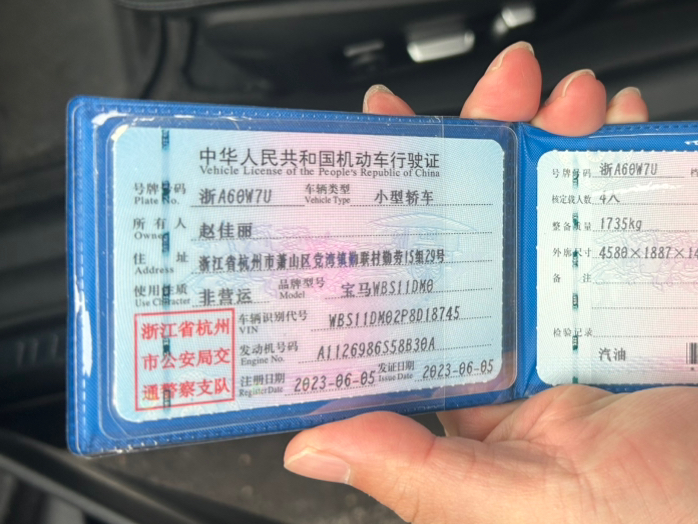 中华人民共和国机动车行驶证
Vehicle License of the People's Republic of China
号牌号码 浙A60W7U 车辆类型 小型轿车
Plate No. Vehicle Type
所有人 赵佳丽
Owner
住址 浙江省杭州市萧山区党湾镇勤联村勤劳15组29号
Address
使用性质 非营运 品牌型号 宝马WBS11DM0
Use Character Model
浙江省杭州
市公安局交
通警察支队
车辆识别代号 WBS11DM02P8D18745
VIN
发动机号码 A1126986S58B30A
Engine No.
注册日期 2023-06-05 发证日期 2023-06-05
Register Date Issue Date
号牌号码 浙A60W7U 档
核定载人数 4人
整备质量 1735kg
外廓尺寸 4580×1887×14
备注
检验记录
汽油